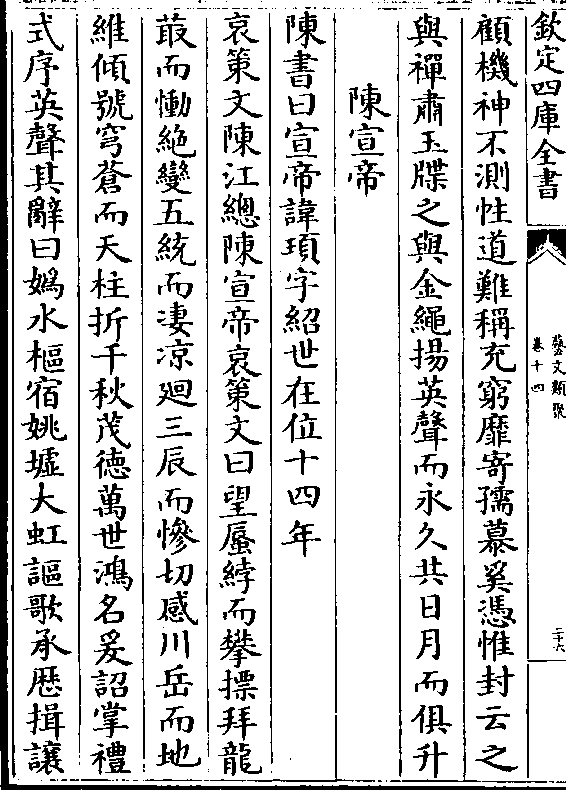 欽定四庫全書
藝文類聚
卷十四
二十六
顧機神不測性道難稱充窮靡寄孺慕奚憑惟封云之
與禪肅玉牒之與金繩揚英聲而永久共日月而俱升
陳宣帝
陳書曰宣帝諱頊字紹世在位十四年
哀策文陳江總陳宣帝哀策文曰望蜃綍而攀摽拜龍
菆而慟絶變五統而凄凉廻三辰而慘切感川岳而地
維傾號穹蒼而天柱折千秋茂德萬世鴻名爰詔掌禮
式序英聲其辭曰媯水樞宿姚墟大虹謳歌承歴揖讓